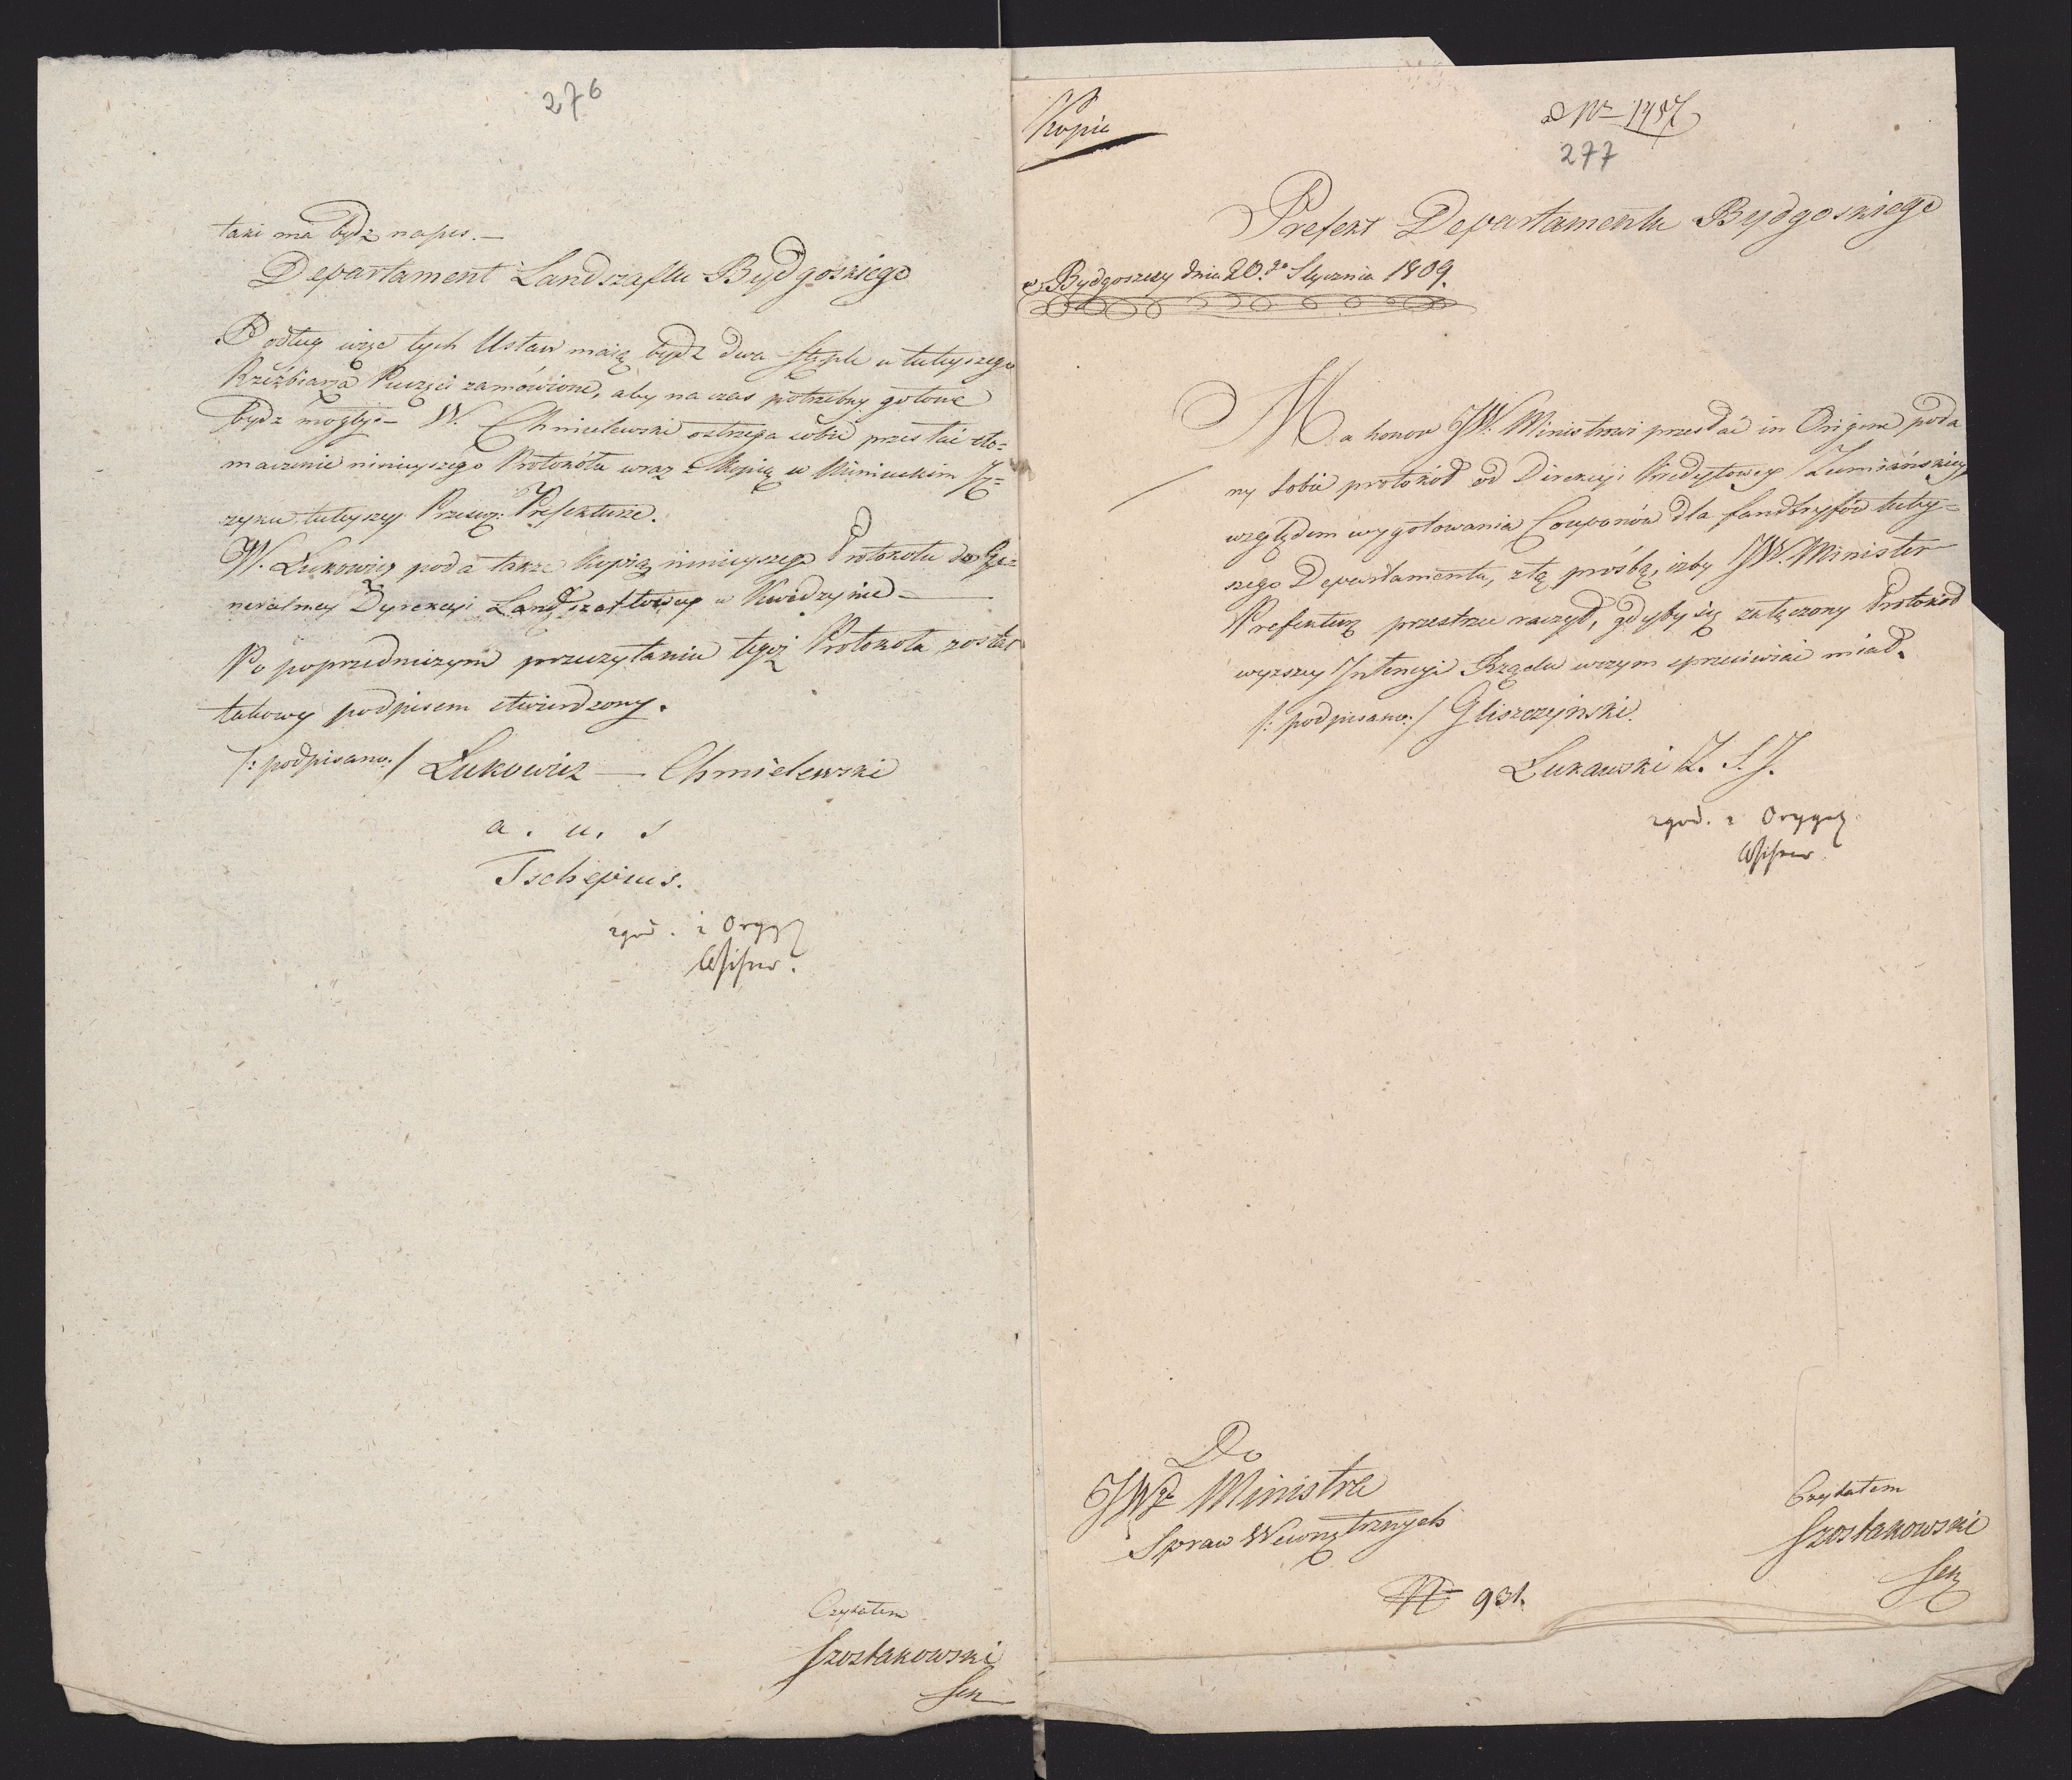 276
taki ma bydź napis. —
Departament Landszaftu Bydgoskiego
Podług więc tych Ustaw maią bydź dwa Stęple u tuteyszego
Rzeźbiarza zamówione, aby na czas potrzebny gotowe
bydz mogły. — W. Chmielewski ostrzega sobie przesłać tło-
maczenie ninieyszego Protokółu wraz z Kopią w Niemieckim Ję-
zyku tuteyszey Prześw: Prefekturze.
W. Lukowicz poda także kopią ninieyszego Protokołu do Ge-
neralney Dyrekcyi Landszaftowey w Kwidzynie —
Po poprzedniczym przeczytaniu tegoż Protokołu został
takowy podpisem stwierdzony.
/: podpisano: / Lukowicz — Chmielewski
a. u. s
Tschepius.
zgod. z Oryg
Czytałem
Szostakowski
Sek
Kopia
ad Nro 1457
277
Prefekt Departamentu Bydgoskiego
w Bydgoszczy dnia 20.go Stycznia 1809.
Ma honor JW. Ministrowi przesłać in Origine poda
ny sobie protokół od Direkcyi Kredytowey Ziemiańskiey
względem wygotowania Couponów dla Pfandbryfów tutey-
szego Departamentu, z tą prośbą, iżby JW. Minister
Prefekturę przestrzec raczył, gdyby się załączony Protokół
wyższey Intencyi Rządu wczym sprzeciwiać miał.
/: podpisano: / Gliszczyński.
Lukawski Z. S. J.
zgod. z Oryg
Do
JWgo Ministra
Spraw Wewnętrznych
Nro 931.
Czytałem
Szostakowski
Sek